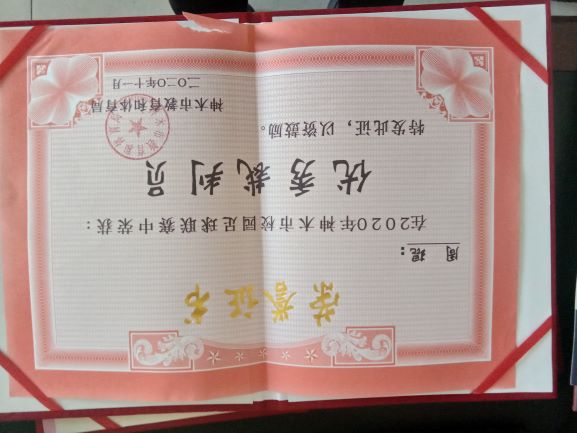 荣誉证书
周琨：
在2020年神木市校园足球联赛中荣获：
优秀裁判员
特发此证，以资鼓励。
神木市教育和体育局
二〇二〇年十一月